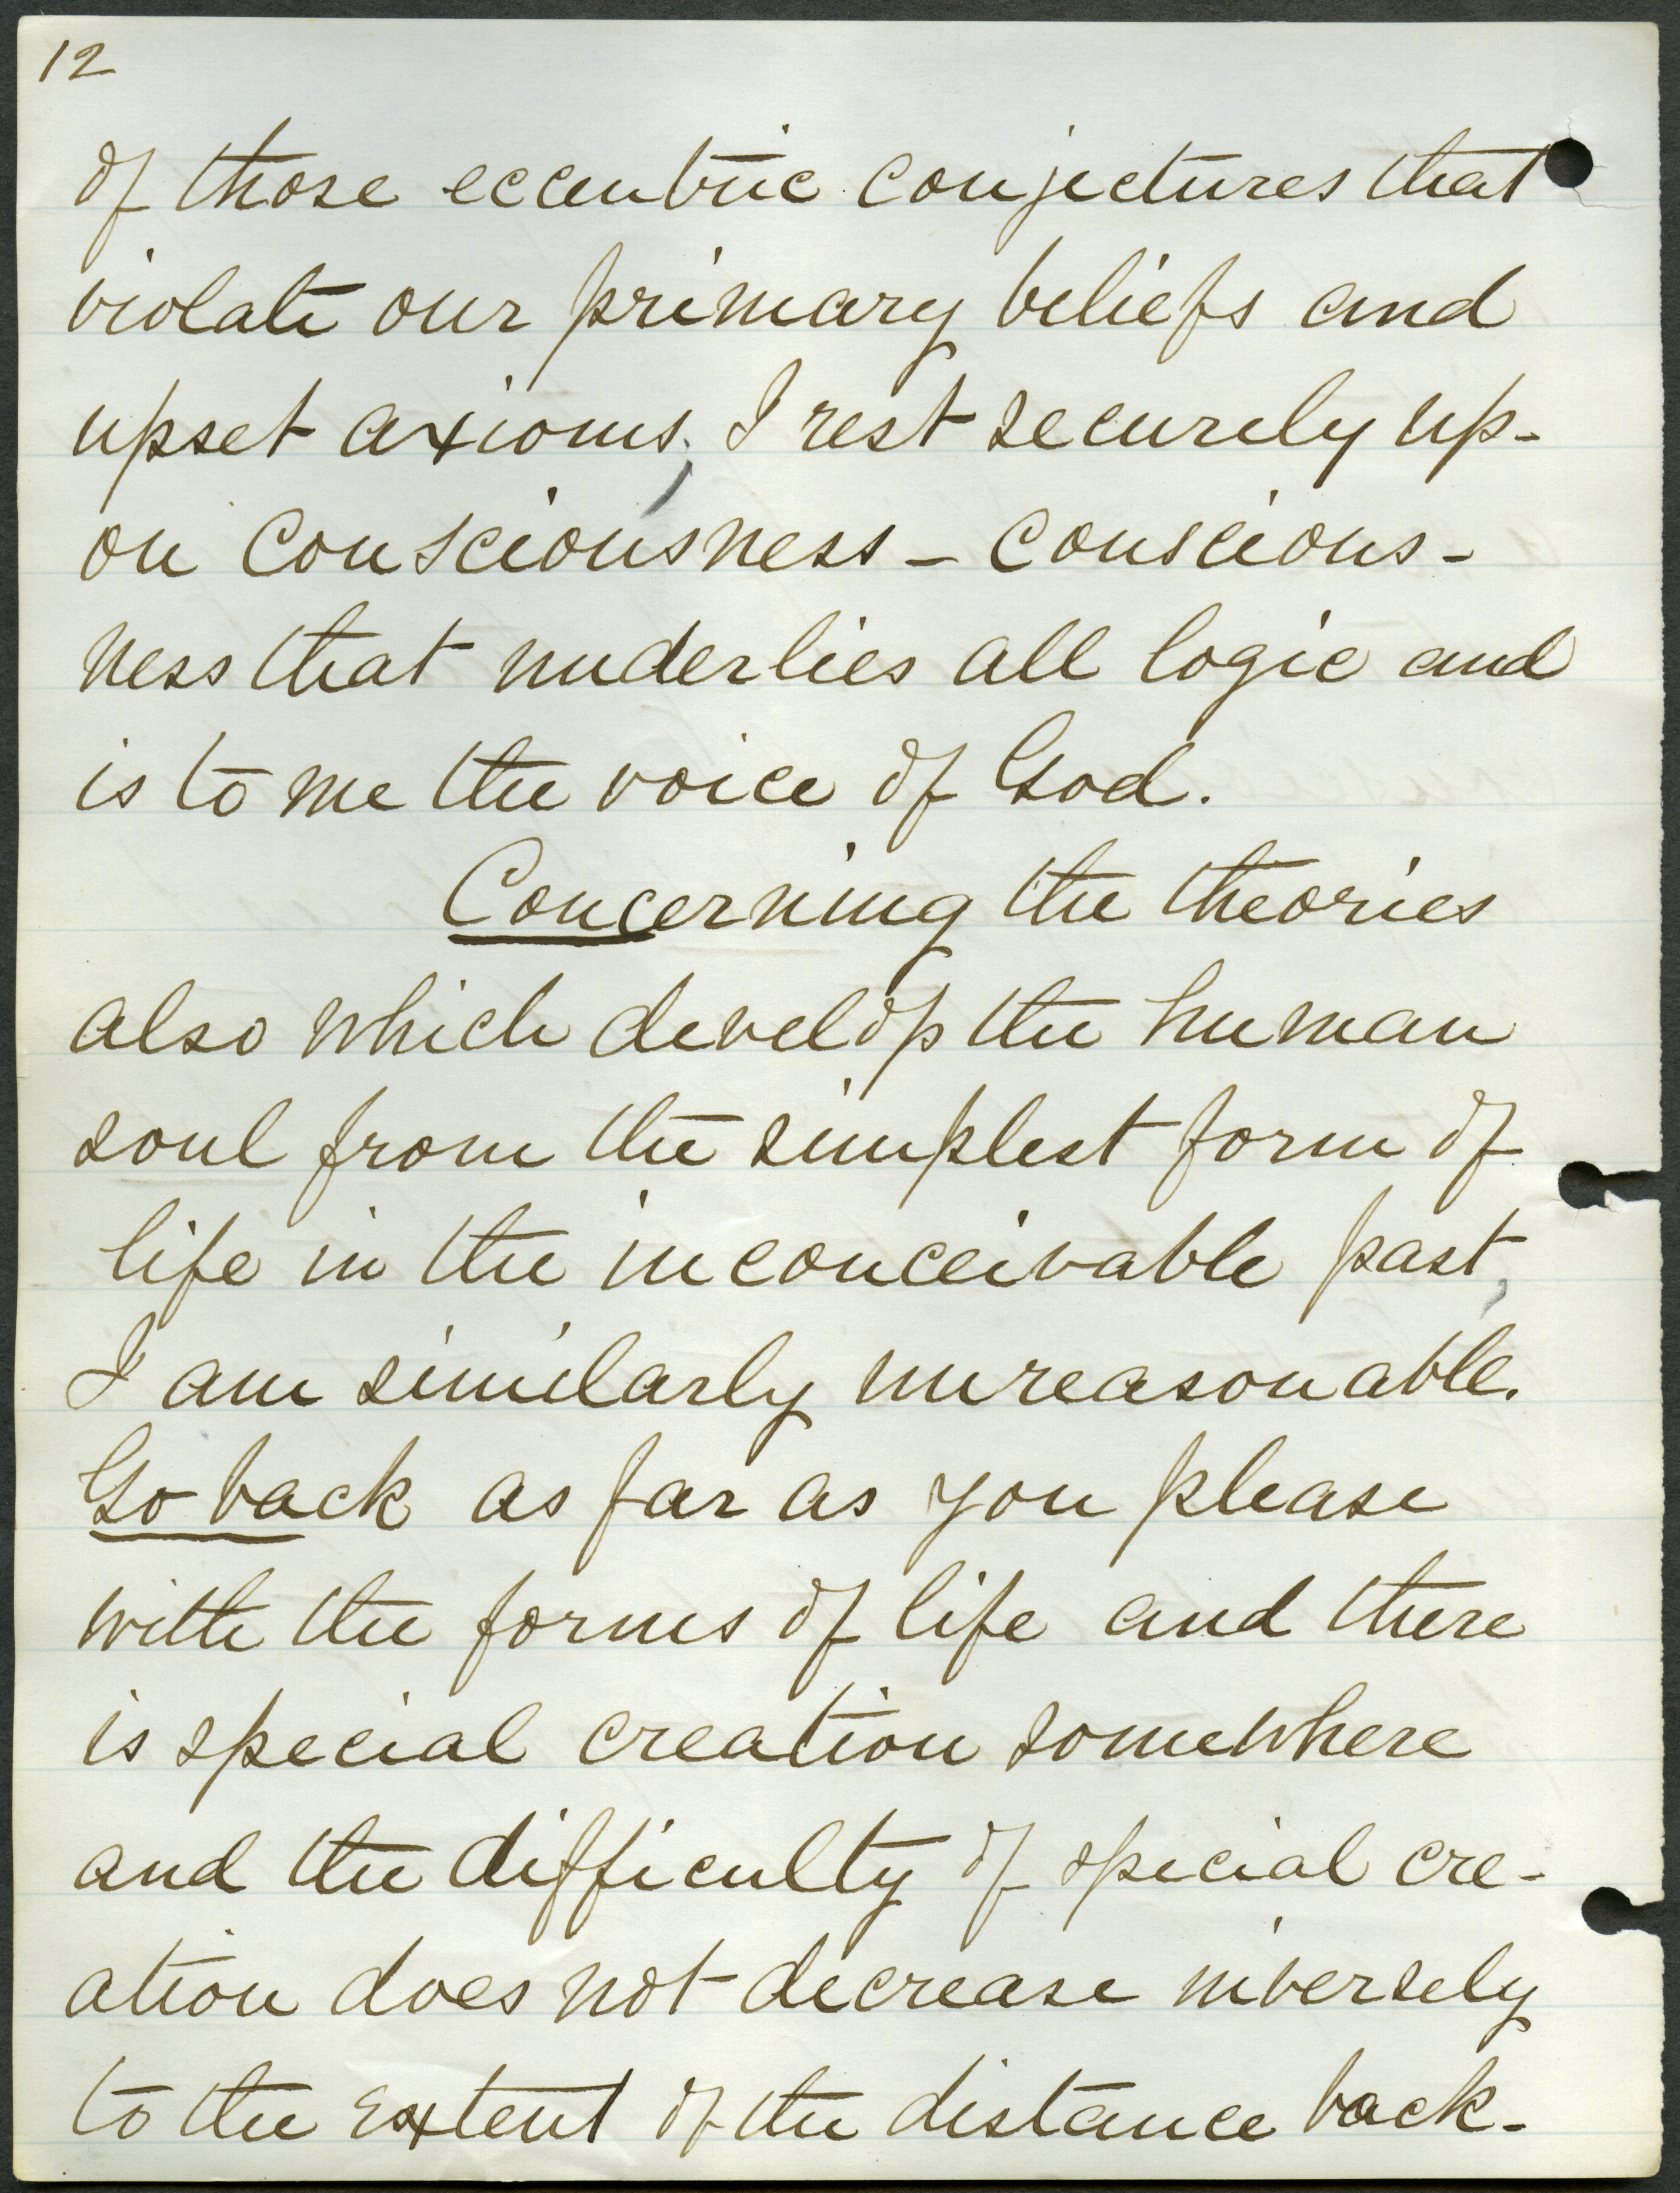 12
of those eccentric conjectures that
violate our primary beliefs and
upset axioms; I rest securely up-
on consciousness – conscious-
ness that underlies all logic and
is to me the voice of God.
Concerning the theories
also which develop the human
soul from the simplest form of
life in the inconceivable past,
I am similarly unreasonable.
Go back as far as you please
with the forms of life and there
is special creation somewhere
and the difficulty of special cre-
ation does not decrease inversely
to the extent of the distance back-